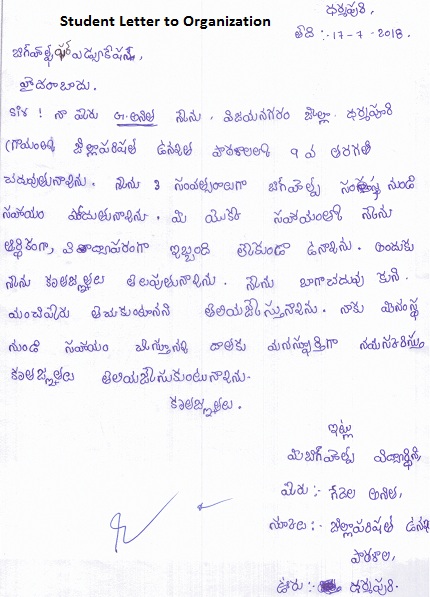 Student Letter to Organization
ధర్మపురి,
తేది :- 17-7-2018.
బిగ్‌హెల్ప్ ఫర్ ఎడ్యుకేషన్,
హైదరాబాదు.
సార్ ! నా పేరు గె. అనిల నేను, విజయనగరం జిల్లా ధర్మపురి
గ్రామంలో జిల్లాపరిషత్ ఉన్నత పాఠశాలలో 9 వ తరగతి
చదువుతున్నాను. నేను 3 సంవత్సరాలుగా బిగ్‌హెల్ప్ సంస్థ నుండి
సహాయం పొందుతున్నాను. మీ యొక్క సహాయంతో నేను
ఆర్థికంగా, విద్యాపరంగా ఇబ్బంది లేకుండా ఉన్నాను. అందుకు
నేను కృతజ్ఞతలు తెలుపుతున్నాను. నేను బాగా చదువు కుని
మంచిపేరు తెచుకుంటానని తెలియజేస్తున్నాను. నాకు మీసంస్థ
నుండి సహాయం చేస్తున్న దాతకు మనస్ఫూర్తిగా నమస్కరిస్తూ
కృతజ్ఞతలు తెలియజేసుకుంటున్నాను.
కృతజ్ఞతలు.
ఇట్లు
మీబిగ్‌హెల్ప్ విద్యార్థిని,
పేరు :- గేదెల అనిల,
స్కూలు :- జిల్లాపరిషత్ ఉన్నత
పాఠశాల,
ఊరు :- ధర్మపురి.